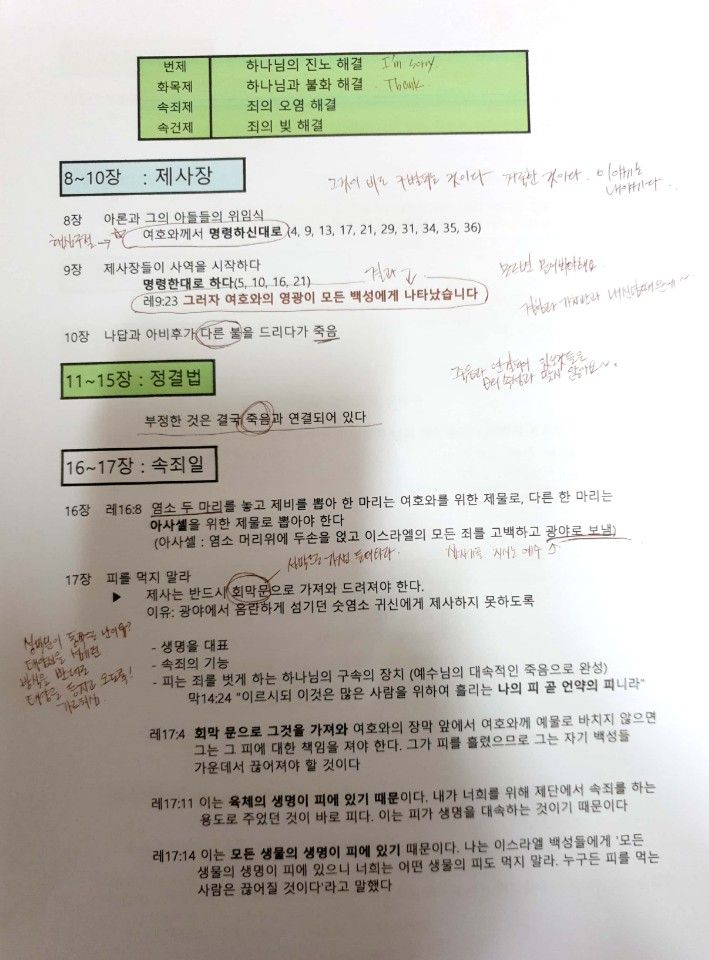 번제 하나님의 진노 해결 I'm sorry
화목제 하나님과 불화 해결 Thank
속죄제 죄의 오염 해결
속건제 죄의 빚 해결
8~10장 : 제사장
그것이 바로 구별되는 것이다 거룩한 것이다.
8장 아론과 그의 아들들의 위임식
핵심구절 → 여호와께서 명령하신대로 (4, 9, 13, 17, 21, 29, 31, 34, 35, 36)
9장 제사장들이 사역을 시작하다
명령한대로 하다(5, 10, 16, 21) 결과
레9:23 그러자 여호와의 영광이 모든 백성에게 나타났습니다
10장 나답과 아비후가 다른 불을 드리다가 죽음
11~15장 : 정결법
부정한 것은 결국 죽음과 연결되어 있다
16~17장 : 속죄일
16장 레16:8 염소 두 마리를 놓고 제비를 뽑아 한 마리는 여호와를 위한 제물로, 다른 한 마리는
아사셀을 위한 제물로 뽑아야 한다
(아사셀 : 염소 머리위에 두손을 얹고 이스라엘의 모든 죄를 고백하고 광야로 보냄)
17장 피를 먹지 말라
▶ 제사는 반드시 회막문으로 가져와 드려져야 한다.
이유: 광야에서 음란하게 섬기던 숫염소 귀신에게 제사하지 못하도록
- 생명을 대표
- 속죄의 기능
- 피는 죄를 벗게 하는 하나님의 구속의 장치 (예수님의 대속적인 죽음으로 완성)
막14:24 "이르시되 이것은 많은 사람을 위하여 흘리는 나의 피 곧 언약의 피니라"
레17:4 회막 문으로 그것을 가져와 여호와의 장막 앞에서 여호와께 예물로 바치지 않으면
그는 그 피에 대한 책임을 져야 한다. 그가 피를 흘렸으므로 그는 자기 백성들
가운데서 끊어져야 할 것이다
레17:11 이는 육체의 생명이 피에 있기 때문이다. 내가 너희를 위해 제단에서 속죄를 하는
용도로 주었던 것이 바로 피다. 이는 피가 생명을 대속하는 것이기 때문이다
레17:14 이는 모든 생물의 생명이 피에 있기 때문이다. 나는 이스라엘 백성들에게 '모든
생물의 생명이 피에 있으니 너희는 어떤 생물의 피도 먹지 말라. 누구든 피를 먹는
사람은 끊어질 것이다'라고 말했다